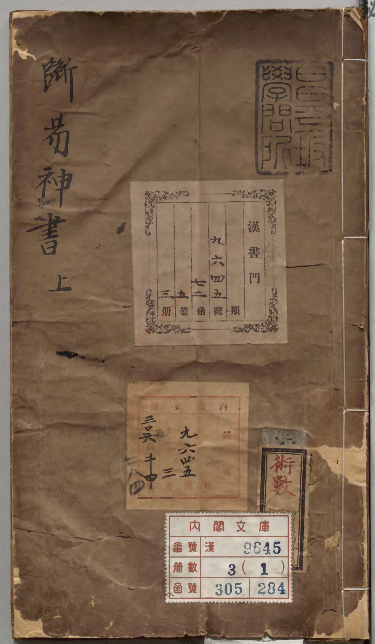 斷易神書 上
昌平坂
學問所
漢書門
類
九六四五 號
七二 函
五 架
三 冊
內閣文庫
漢書
九六四五
三
術數
內閣文庫
番號 漢 9645
冊數 3(1)
函號 305 284